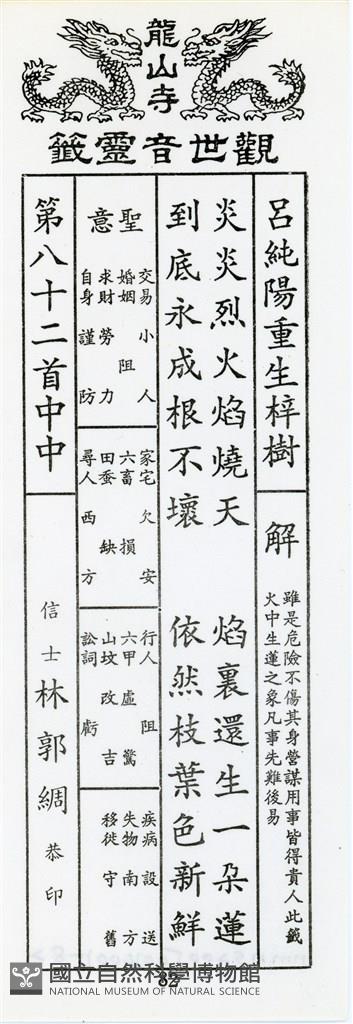 龍山寺
觀世音靈籤
呂純陽重生梓樹
解
雖是危險不傷其身營謀用事皆得貴人此籤
火中生蓮之象凡事先難後易
炎炎烈火焰燒天　焰裏還生一朶蓮
到底永成根不壞　依然枝葉色新鮮
聖意
交易小人
婚姻阻
求財勞力
自身謹防
家宅欠安
六畜損
田蚕缺
尋人西方
行人阻
六甲虛驚
山坟改吉
訟詞虧
疾病設送
失物南方
移徙守舊
第八十二首中中
信士林郭綢恭印
82
國立自然科學博物館
NATIONAL MUSEUM OF NATURAL SCIENCE